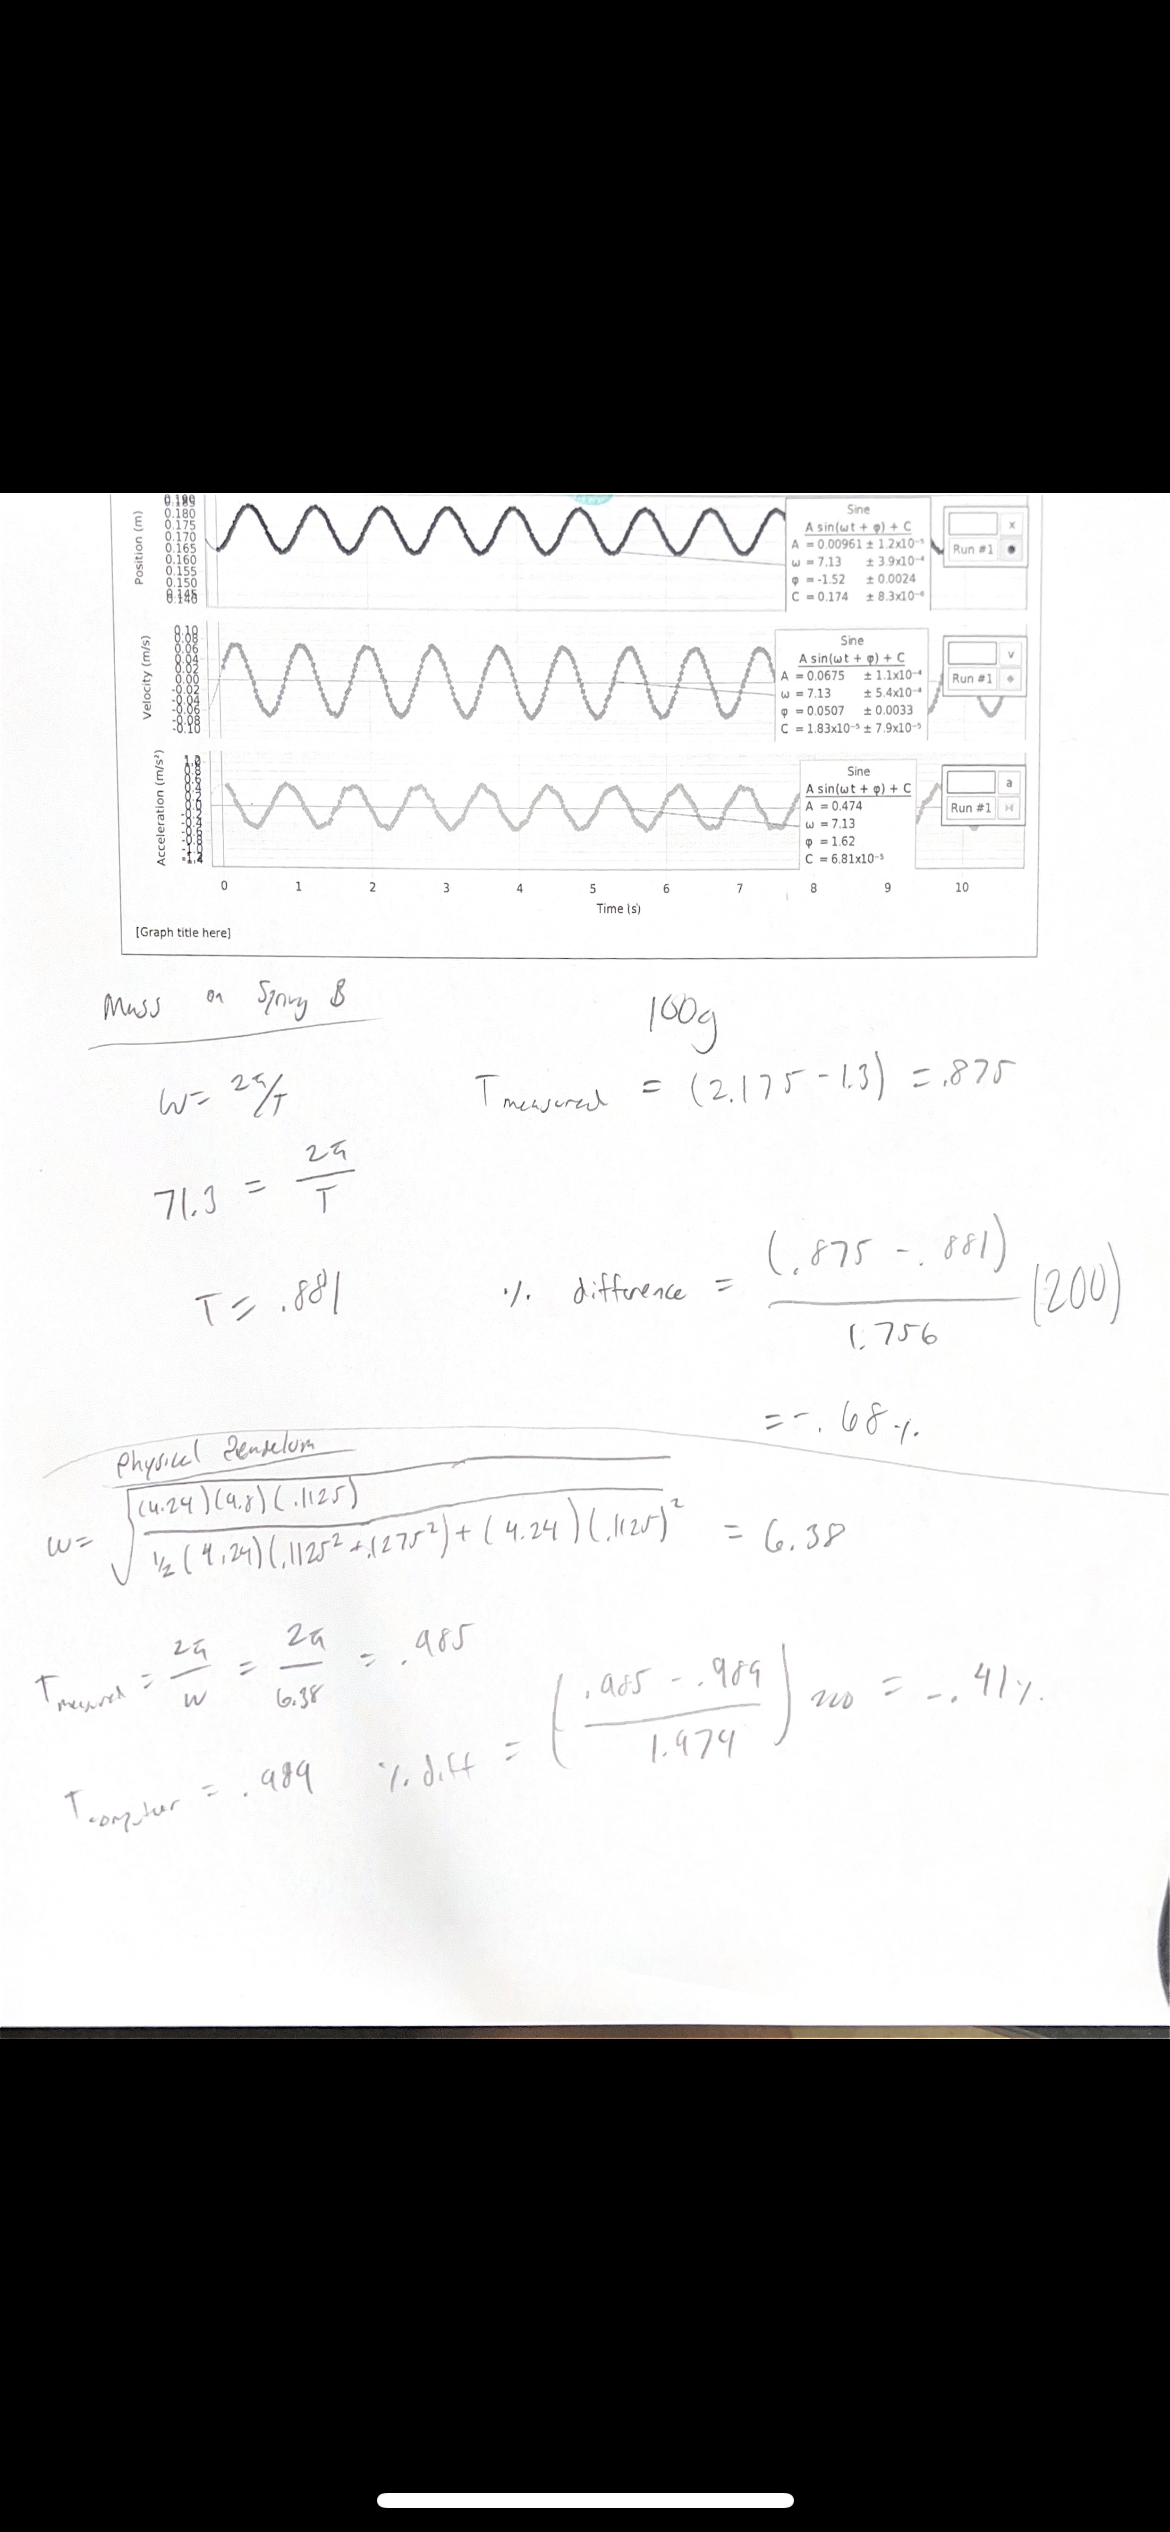 0.190
0.185
0.180
0.175
0.170
0.165
0.160
0.155
0.150
0.145
0.140
Position (m)
Sine
A sin(ωt + φ) + C
A = 0.00961 ± 1.2x10⁻⁵
ω = 7.13 ± 3.9x10⁻⁴
φ = -1.52 ± 0.0024
C = 0.174 ± 8.3x10⁻⁶
x
Run #1
0.10
0.08
0.06
0.04
0.02
0.00
-0.02
-0.04
-0.06
-0.08
-0.10
Velocity (m/s)
Sine
A sin(ωt + φ) + C
A = 0.0675 ± 1.1x10⁻⁴
ω = 7.13 ± 5.4x10⁻⁴
φ = 0.0507 ± 0.0033
C = 1.83x10⁻⁵ ± 7.9x10⁻⁵
v
Run #1
1.0
0.8
0.6
0.4
0.2
0.0
-0.2
-0.4
-0.6
-0.8
-1.0
-1.2
Acceleration (m/s²)
Sine
A sin(ωt + φ) + C
A = 0.474
ω = 7.13
φ = 1.62
C = 6.81x10⁻⁵
a
Run #1
0 1 2 3 4 5 6 7 8 9 10
Time (s)
[Graph title here]
Mass on Spring B
100g
ω = 2π/T
T measured = (2.175 - 1.3) = .875
71.3 = 2π/T
T = .881
% difference = (.875 - .881)/1.756 (200)
= -.68%
Physical Pendelum
ω = √((4.24)(9.8)(.1125) / ½(4.24)(.1125² + .1275²) + (4.24)(.1125)²) = 6.38
T measured = 2π/ω = 2π/6.38 = .985
T computer = .989
% diff = (.985 - .989 / 1.974) 200 = -.41%